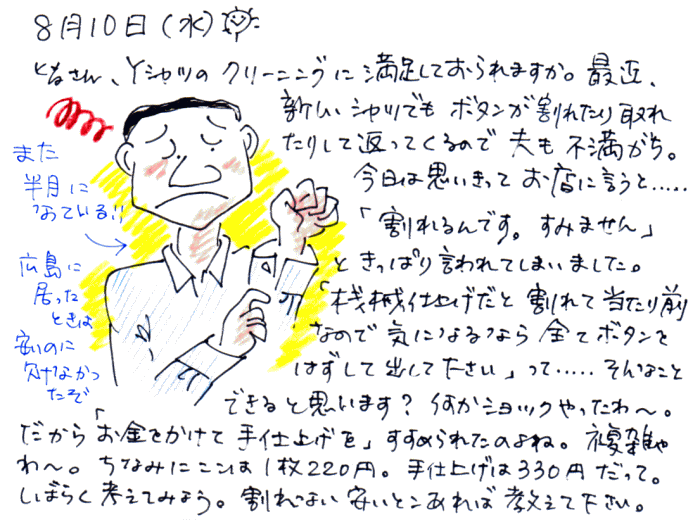 8月10日(水)
となさん、Yシャツのクリーニングに満足しておられますか。最近、
新しいシャツでもボタンが割れたり取れ
たりして返ってくるので夫も不満がち。
今日は思いきってお店に言うと.....
「割れるんです。すみません」
ときっぱり言われてしまいました。
「機械仕上げだと割れて当たり前
なので気になるなら全てボタンを
はずして出して下さい」って.....そんなこと
できると思います?何かショックやったわ〜。
だから「お金をかけて手仕上げを」すすめられたのよね。複雑や
わ〜。ちなみにここは1枚220円。手仕上げは330円だって。
しばらく考えてみよう。割れない安いとこあれば教えて下さい。
また
半月に
なっている!!
広島に
居った
ときは
安いのに
欠けなかっ
たぞ